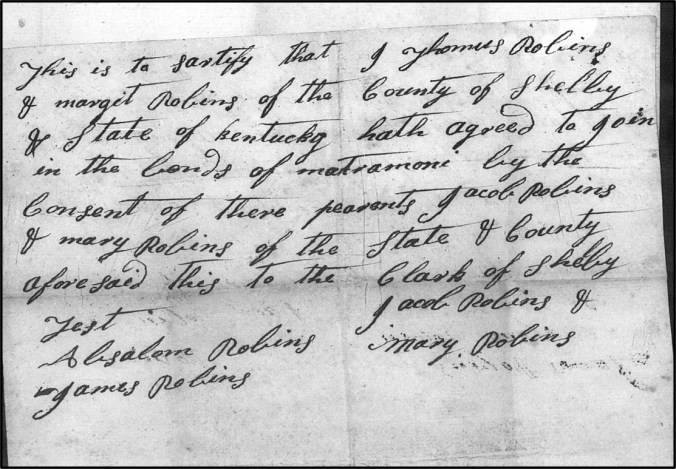 This is to sartify that I Thomas Robins
& margit Robins of the County of Shelby
& State of kentucky hath agreed to Join
in the bonds of matramoni by the
Consent of there pearents Jacob Robins
& mary Robins of the State & County
aforesaid this to the Clark of Shelby
Jacob Robins &
Test
mary Robins
Absalom Robins
James Robins